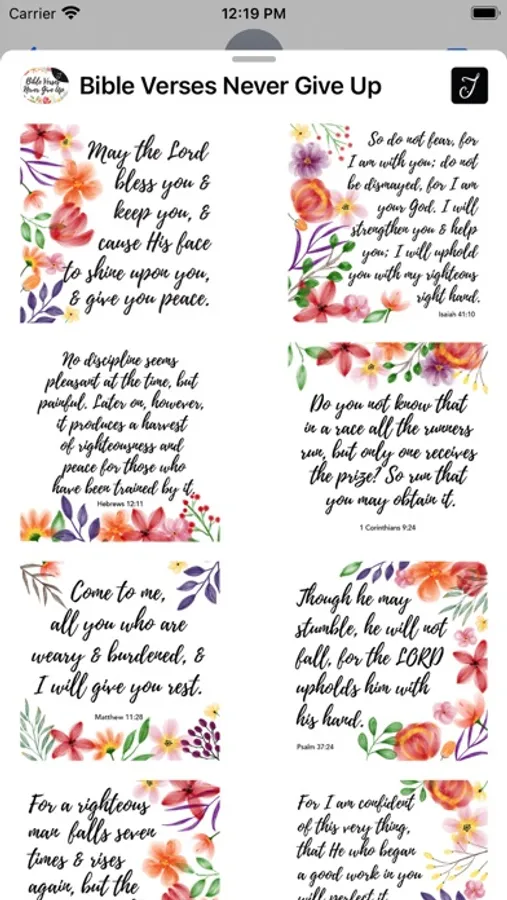 Carrier 12:19 PM
Bible Verses
Never Give Up
Bible Verses Never Give Up
May the Lord
bless you &
keep you, &
cause His face
to shine upon you,
& give you peace.
So do not fear, for
I am with you; do not
be dismayed, for I am
your God. I will
strengthen you & help
you; I will uphold
you with my righteous
right hand.
Isaiah 41:10
No discipline seems
pleasant at the time, but
painful. Later on, however,
it produces a harvest
of righteousness and
peace for those who
have been trained by it.
Hebrews 12:11
Do you not know that
in a race all the runners
run, but only one receives
the prize? So run that
you may obtain it.
1 Corinthians 9:24
Come to me,
all you who are
weary & burdened, &
I will give you rest.
Matthew 11:28
Though he may
stumble, he will not
fall, for the LORD
upholds him with
his hand.
Psalm 37:24
For a righteous
man falls seven
times & rises
again, but the
For I am confident
of this very thing,
that He who began
a good work in you
will perfect it